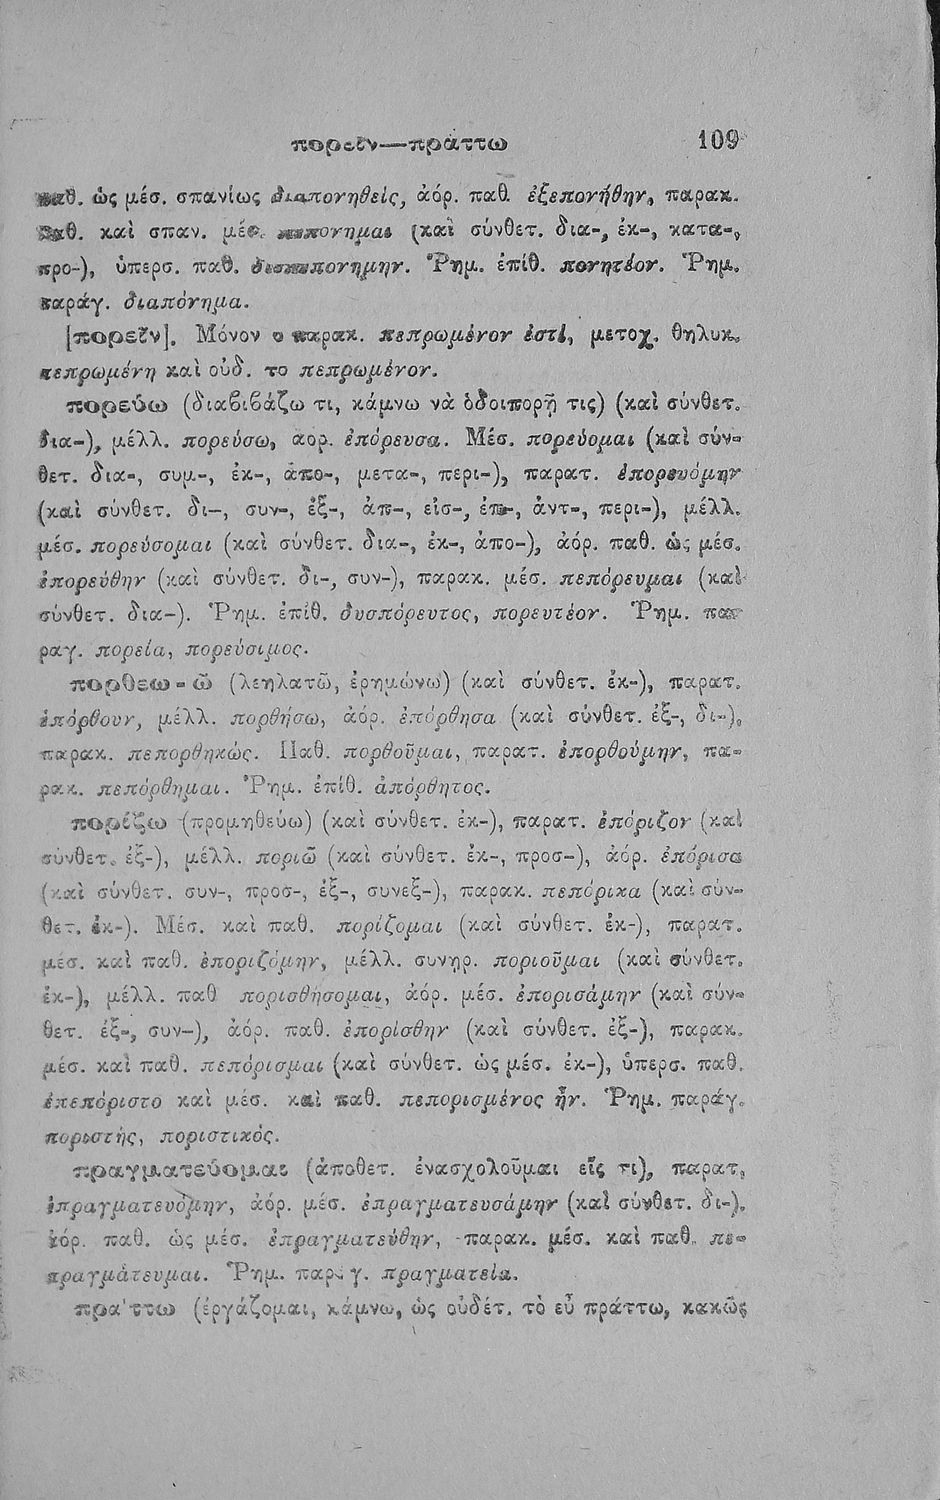 πορεῖν—πράττω 109
παθ. ὡς μέσ. σπανίως διαπονηθείς, ἀόρ. παθ. ἐξεπονήθην, παρακ.
παθ. καὶ σπαν. μέσ. πεπόνημαι (καὶ σύνθετ. δια-, ἐκ-, κατα-,
προ-), ὑπερσ. παθ. Ῥημ. ἐπίθ. πονητέον. Ῥημ.
παράγ. διαπόνημα.
[πορεῖν]. Μόνον ὁ παρακ. πεπρωμένον ἐστί, μετοχ. θηλυκ.
πεπρωμένη καὶ οὐδ. το πεπρωμένον.
πορεύω (διαβιβάζω τι, κάμνω νὰ ὁδοιπορῇ τις) (καὶ σύνθετ.
δια-), μέλλ. πορεύσω, αορ. ἐπόρευσα. Μέσ. πορεύομαι (καὶ σύν-
θετ. δια-, συμ-, ἐκ-, ἀπο-, μετα-, περι-), παρατ. ἐπορευόμην
(καὶ σύνθετ. δι-, συν-, ἐξ-, ἀπ-, εἰσ-, ἐπ-, ἀντ-, περι-), μέλλ.
μέσ. πορεύσομαι (καὶ σύνθετ. δια-, ἐκ-, ἀπο-), ἀόρ. παθ. ὡς μέσ.
ἐπορεύθην (καὶ σύνθετ. δι-, συν-), παρακ. μέσ. πεπόρευμαι (καὶ
σύνθετ. δια-). Ῥημ. ἐπίθ. δυσπόρευτος, πορευτέον. Ῥημ. πα-
ραγ. πορεία, πορεύσιμος.
πορθεω-ῶ (λεηλατῶ, ἐρημώνω) (καὶ σύνθετ. ἐκ-), παρατ.
ἐπόρθουν, μέλλ. πορθήσω, ἀόρ. ἐπόρθησα (καὶ σύνθετ. ἐξ-, δι-),
παρακ. πεπορθηκώς. Παθ. πορθοῦμαι, παρατ. ἐπορθούμην, πα-
ρακ. πεπόρθημαι. Ῥημ. ἐπίθ. ἀπόρθητος.
πορίζω (προμηθεύω) (καὶ σύνθετ. ἐκ-), παρατ. ἐπόριζον (καὶ
σύνθετ. ἐξ-), μέλλ. ποριῶ (καὶ σύνθετ. ἐκ-, προσ-), ἀόρ. ἐπόρισα
(καὶ σύνθετ. συν-, προσ-, ἐξ-, συνεξ-), παρακ. πεπόρικα (καὶ σύν-
θετ. ἐκ-). Μέσ. καὶ παθ. πορίζομαι (καὶ σύνθετ. ἐκ-), παρατ.
μέσ. καὶ παθ. ἐποριζόμην, μέλλ. συνηρ. ποριοῦμαι (καὶ σύνθετ.
ἐκ-), μέλλ. παθ πορισθήσομαι, ἀόρ. μέσ. ἐπορισάμην (καὶ σύν-
θετ. ἐξ-, συν-), ἀόρ. παθ. ἐπορίσθην (καὶ σύνθετ. ἐξ-), παρακ.
μέσ. καὶ παθ. πεπόρισμαι (καὶ σύνθετ. ὡς μέσ. ἐκ-), ὑπερσ. παθ.
ἐπεπόριστο καὶ μέσ. καὶ παθ. πεπορισμένος ἦν. Ῥημ. παράγ.
ποριστής, ποριστικός.
πραγματεύομαι (ἀποθετ. ἐνασχολοῦμαι εἴς τι), παρατ.
ἐπραγματευόμην, ἀόρ. μέσ. ἐπραγματευσάμην (καὶ σύνθετ. δι-),
ἀόρ. παθ. ὡς μέσ. ἐπραγματεύθην, παρακ. μέσ. καὶ παθ. πε-
πραγμάτευμαι. Ῥημ. παράγ. πραγματεία.
πρα'ττω (ἐργάζομαι, κάμνω, ὡς οὐδέτ. τὸ εὖ πράττω, κακῶς